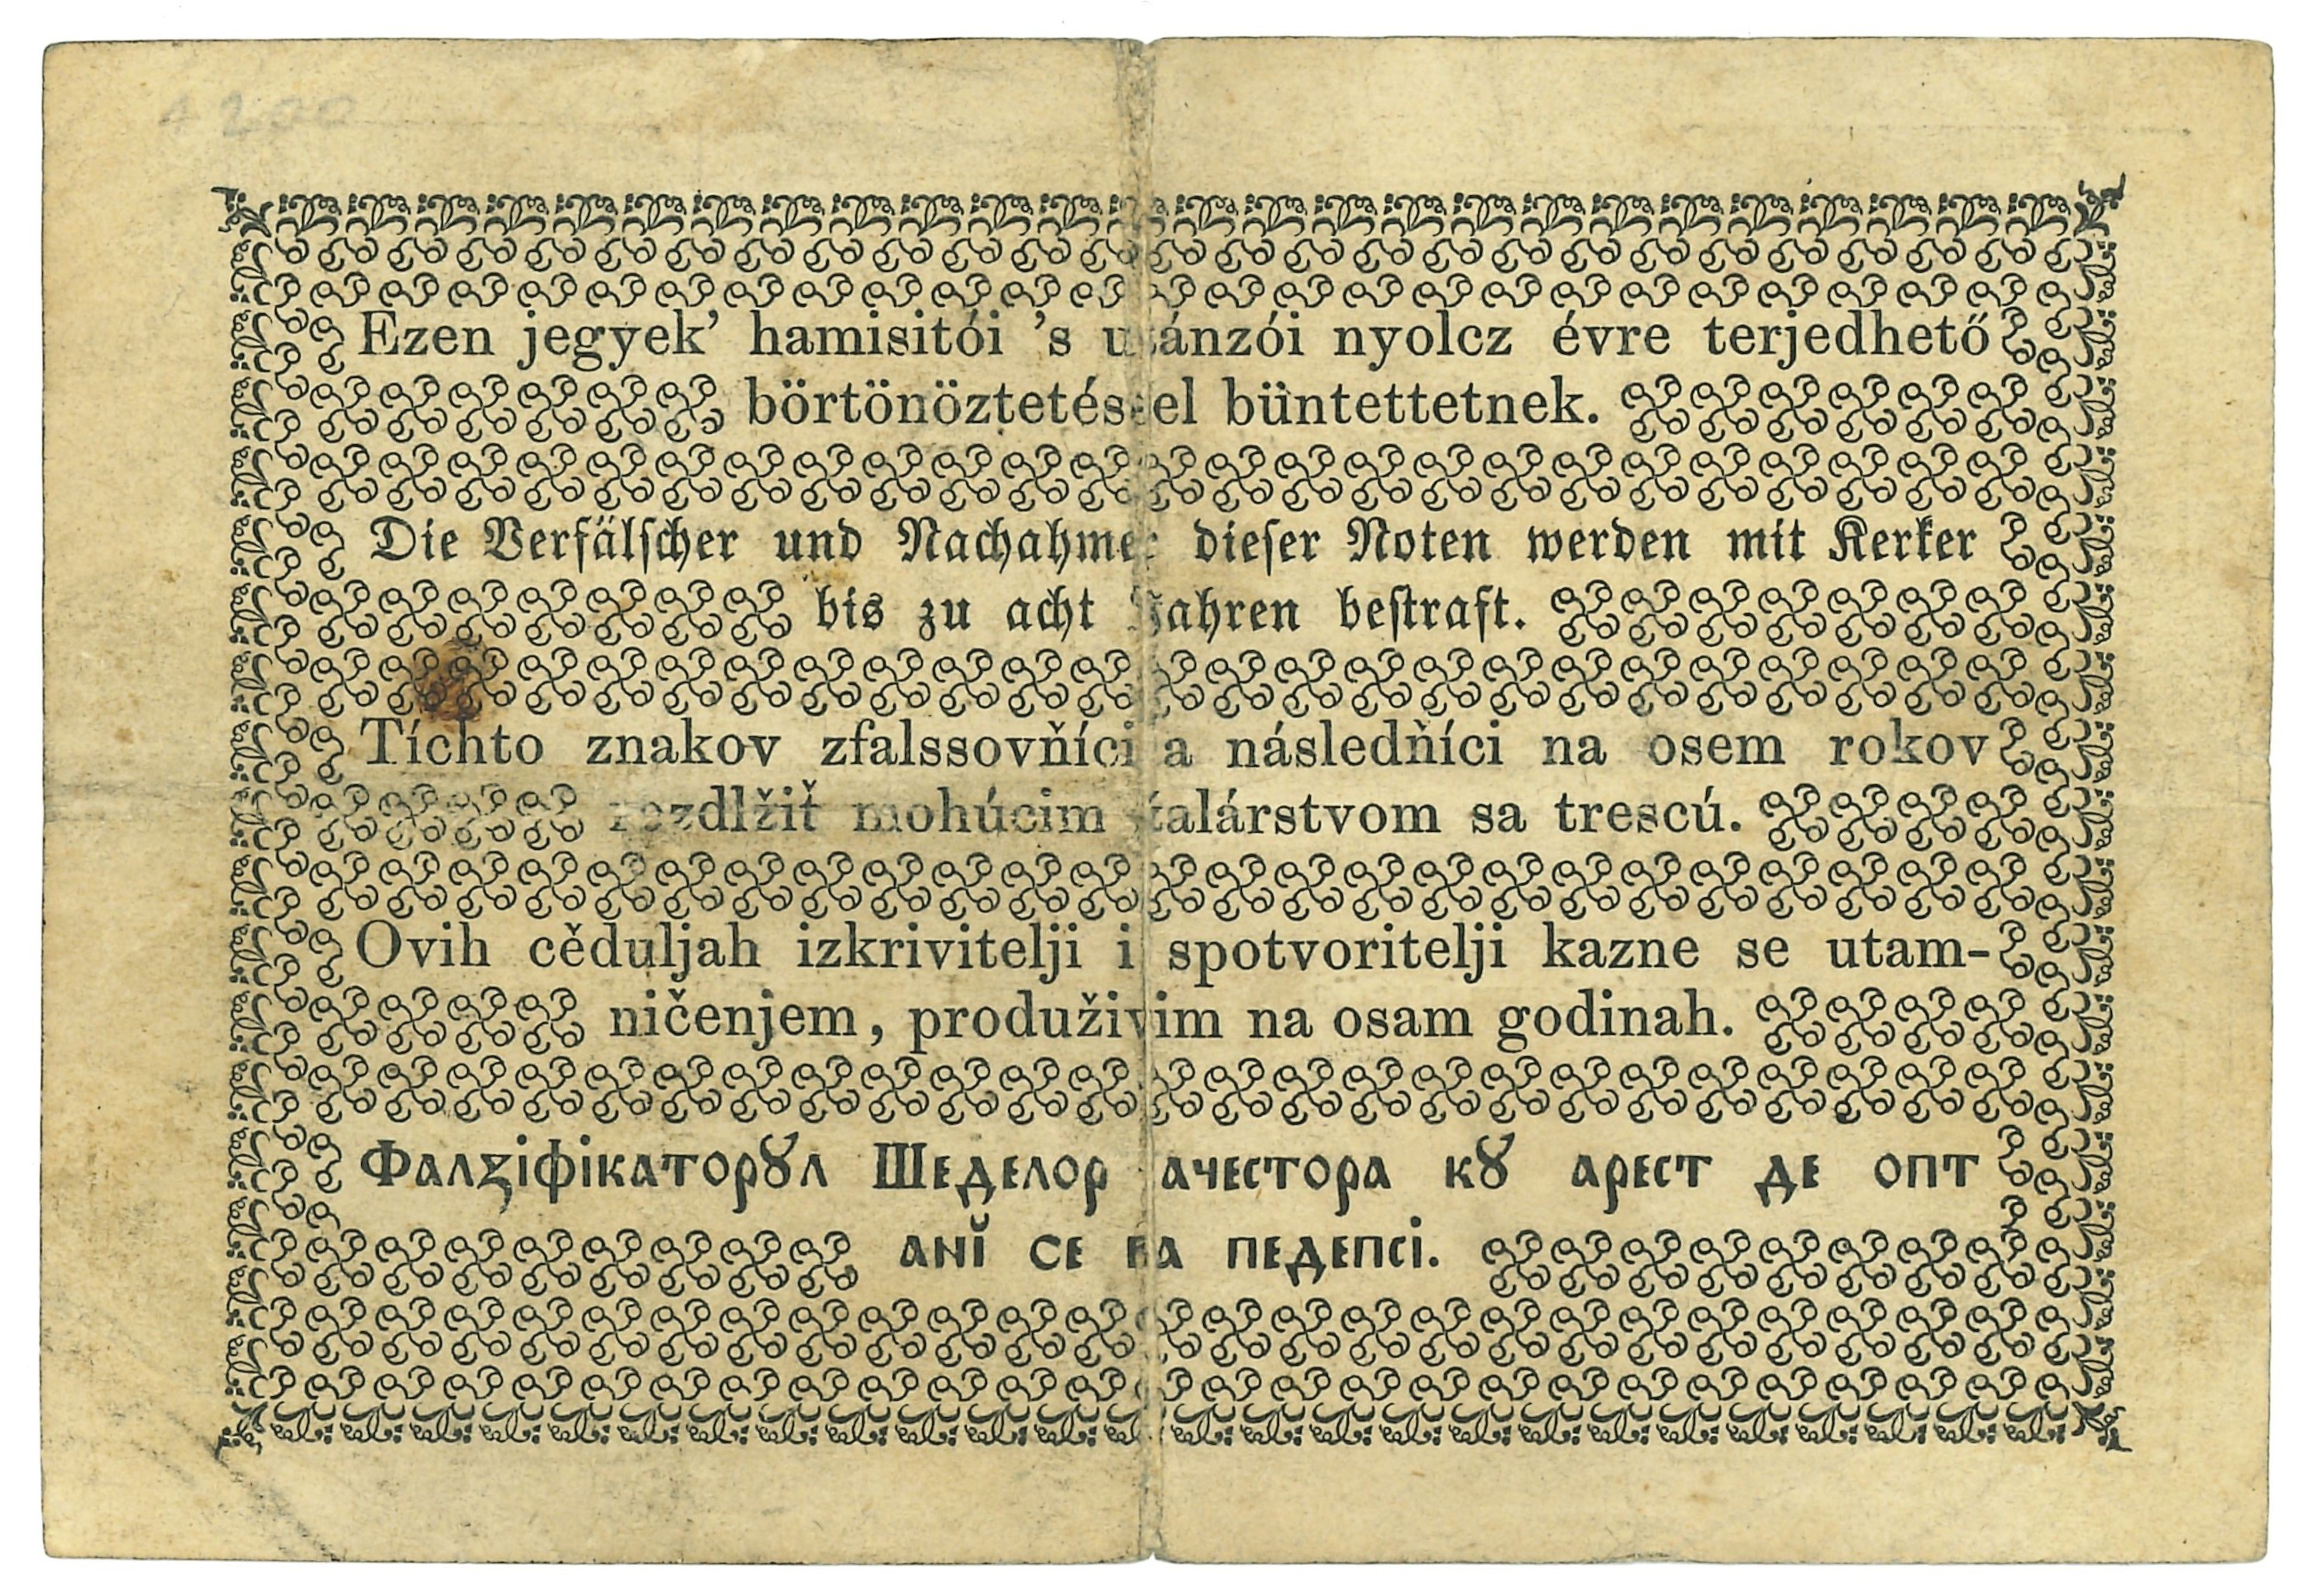 4200
Ezen jegyek’ hamisitói ’s utánzói nyolcz évre terjedhető
börtönöztetéssel büntettetnek.
Die Verfälscher und Nachahmer dieser Noten werden mit Kerker
bis zu acht Jahren bestraft.
Tíchto znakov zfalssovňíci a následňíci na osem rokov
rozdlžiť mohúcim žalárstvom sa trescú.
Ovih cěduljah izkrivitelji i spotvoritelji kazne se utam-
ničenjem, produživim na osam godinah.
Фалѯіфікаторꙋл Шеделор ачестора кꙋ арест де опт
анĭ се ва педепсі.